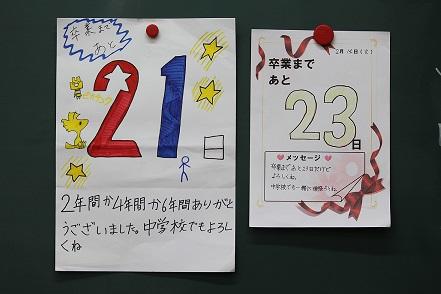 卒業まで
あと
21
日
2年間か4年間か6年間ありがと
うございました。中学校でもよろし
くね
卒業まで
あと
23
日
メッセージ
卒業まであと23日だけど
よろしくね。